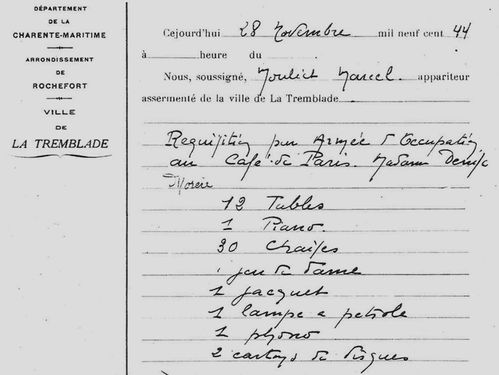 DÉPARTEMENT
DE LA
CHARENTE-MARITIME
ARRONDISSEMENT
DE
ROCHEFORT
VILLE
DE
LA TREMBLADE
Cejourd'hui 28 Novembre mil neuf cent 44
à heure du
Nous, soussigné, Marcel. appariteur
assermenté de la ville de La Tremblade
Requisition par Armée d'Occupation
au Café de Paris. Madame Denise
12 Tables
1 Piano.
30 Chaises
1 jeu de dame
1 jacquet
1 lampe a petrole
1 phono
2 cartons de disques